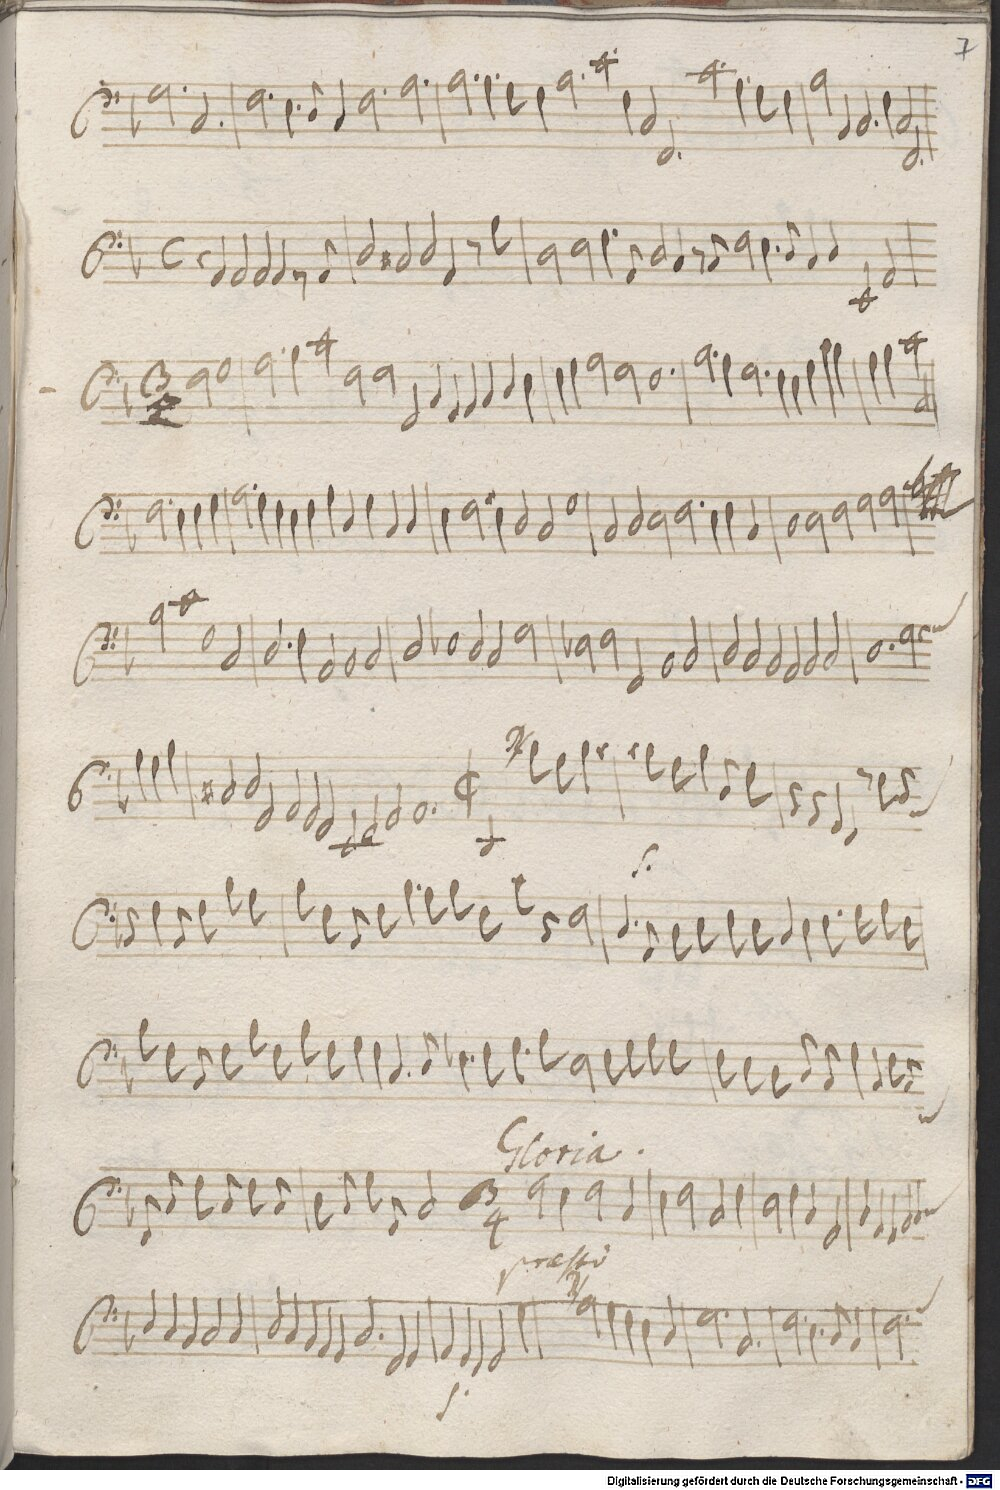 7
C
3
Gloria.
3
4
presto
f.
Digitalisierung gefördert durch die Deutsche Forschungsgemeinschaft - DFG